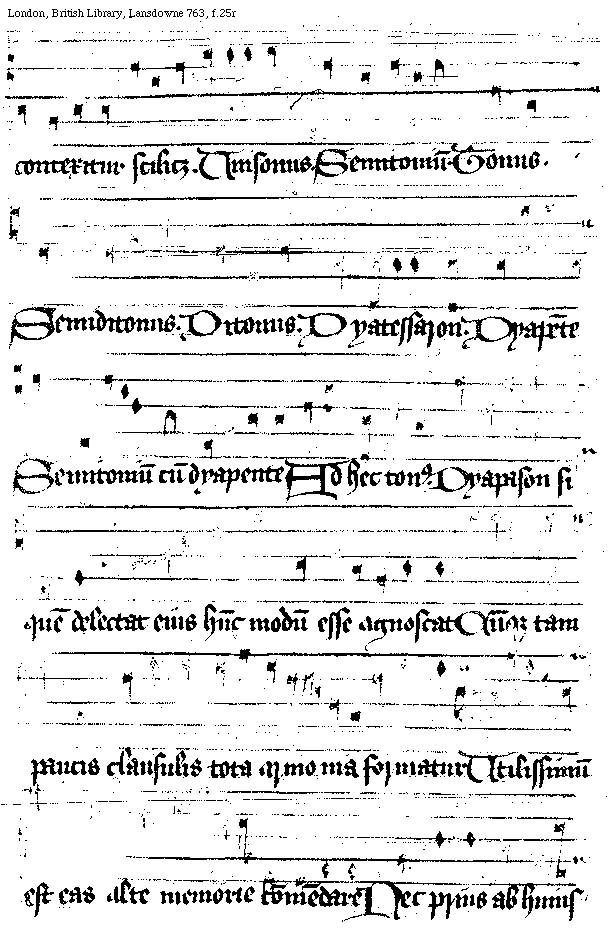 London, British Library, Lansdowne 763, f.25r
contexitur scilitz. Unisonus. Semitoniū. Tonus.
Semiditonus. Ditonus. Dyatessaron. Dyapēte
Semitoniū cū dyapente Ad hēc tonꝰ. Dyapason si
quē delectat eius hūc modū esse agnoscat Cūqꝫ tam
paucis clausulis tota armonia formatur Utilissimū
est eas alte memorie cōmēdare Nec prius ab huius